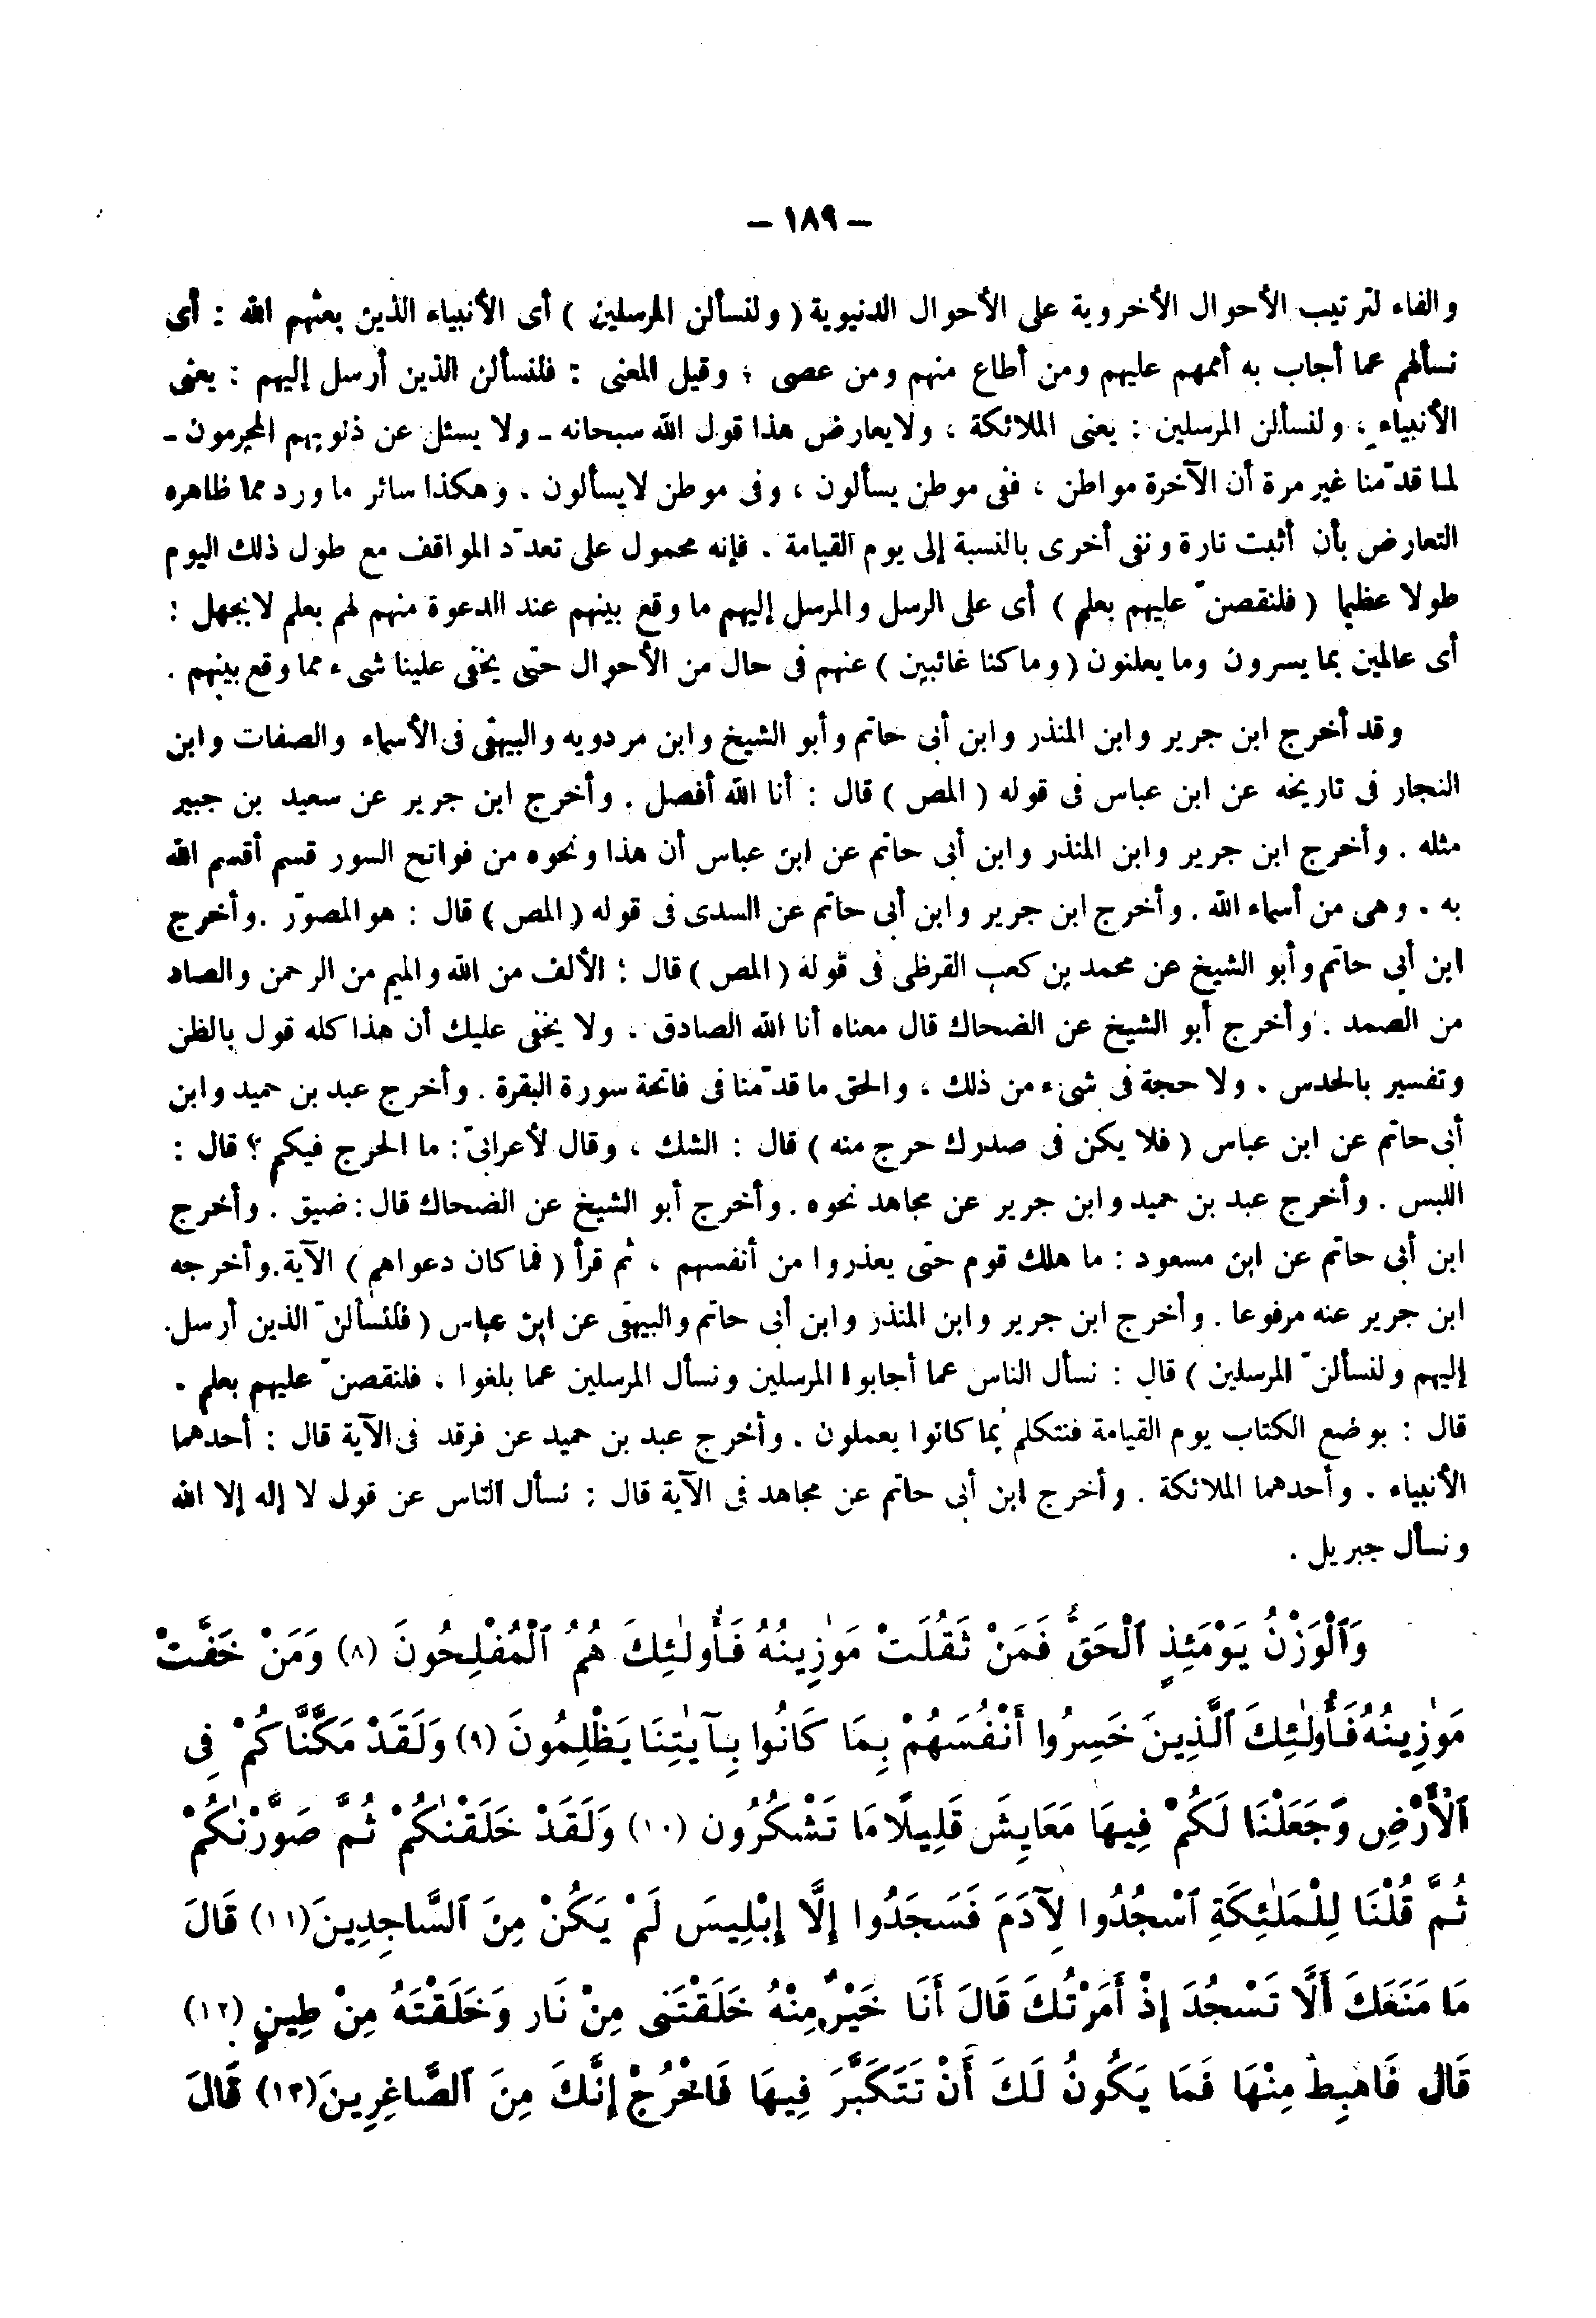 — ١٨٩ —
والفاء لترتيب الأحوال الأخروية على الأحوال الدنيوية ( ولنسألن المرسلين ) أى الأنبياء الذين بعثهم الله : أى
نسألهم عما أجاب به أممهم عليهم ومن أطاع منهم ومن عصى ؛ وقيل المعنى : فلنسألن الذين أرسل إليهم : يعنى
الأنبياء ، ولنسألن المرسلين : يعنى الملائكة ، ولا يعارض هذا قول الله سبحانه ـ ولا يسئل عن ذنوبهم المجرمون ـ
لما قدّمنا غير مرة أن الآخرة مواطن ، ففى موطن يسألون ، وفى موطن لايسألون . وهكذا سائر ما ورد مما ظاهره
التعارض بأن أثبت تارة ونفى أخرى بالنسبة إلى يوم القيامة . فإنه محمول على تعدّد المواقف مع طول ذلك اليوم
طولا عظيما ( فلنقصنّ عليهم بعلم ) أى على الرسل والمرسل إليهم ما وقع بينهم عند الدعوة منهم لهم بعلم لا بجهل :
أى عالمين بما يسرون وما يعلنون ( وما كنا غائبين ) عنهم فى حال من الأحوال حتى يخفى علينا شىء مما وقع بينهم .
وقد أخرج ابن جرير وابن المنذر وابن أبى حاتم وأبو الشيخ وابن مردويه والبيهقى فى الأسماء والصفات وابن
النجار فى تاريخه عن ابن عباس فى قوله ( المص ) قال : أنا الله أفصل . وأخرج ابن جرير عن سعيد بن جبير
مثله . وأخرج ابن جرير وابن المنذر وابن أبى حاتم عن ابن عباس أن هذا ونحوه من فواتح السور قسم أقسم الله
به . وهى من أسماء الله . وأخرج ابن جرير وابن أبى حاتم عن السدى فى قوله ( المص ) قال : هو المصوّر . وأخرج
ابن أبى حاتم وأبو الشيخ عن محمد بن كعب القرظى فى قوله ( المص ) قال : الألف من الله والميم من الرحمن والصاد
من الصمد . وأخرج أبو الشيخ عن الضحاك قال معناه أنا الله الصادق ، ولا يخفى عليك أن هذا كله قول بالظن
وتفسير بالحدس . ولا حجة فى شىء من ذلك ، والحق ما قدّمنا فى فاتحة سورة البقرة . وأخرج عبد بن حميد وابن
أبى حاتم عن ابن عباس ( فلا يكن فى صدرك حرج منه ) قال : الشك ، وقال لأعرابىّ : ما الحرج فيكم ؟ قال :
اللبس . وأخرج عبد بن حميد وابن جرير عن مجاهد نحوه . وأخرج أبو الشيخ عن الضحاك قال : ضيق . وأخرج
ابن أبى حاتم عن ابن مسعود : ما هلك قوم حتى يعذروا من أنفسهم ، ثم قرأ ( فما كان دعواهم ) الآية . وأخرجه
ابن جرير عنه مرفوعا . وأخرج ابن جرير وابن المنذر وابن أبى حاتم والبيهقى عن ابن عباس ( فلنسألنّ الذين أرسل
إليهم ولنسألنّ المرسلين ) قال : نسأل الناس عما أجابوا المرسلين ونسأل المرسلين عما بلغوا ، فلنقصنّ عليهم بعلم .
قال : بوضع الكتاب يوم القيامة فنتكلم بما كانوا يعملون . وأخرج عبد بن حميد عن فرقد فى الآية قال : أحدهما
الأنبياء . وأحدهما الملائكة . وأخرج ابن أبى حاتم عن مجاهد فى الآية قال : نسأل الناس عن قول لا إله إلا الله
ونسأل جبريل .
وَٱلْوَزْنُ يَوْمَئِذٍ ٱلْحَقُّ فَمَنْ ثَقُلَتْ مَوٰزِينُهُ فَأُولٰئِكَ هُمُ ٱلْمُفْلِحُونَ (٨) وَمَنْ خَفَّتْ
مَوٰزِينُهُ فَأُولٰئِكَ ٱلَّذِينَ خَسِرُوا أَنْفُسَهُمْ بِمَا كَانُوا بِـآيٰتِنَا يَظْلِمُونَ (٩) وَلَقَدْ مَكَّنَّاكُمْ فِى
ٱلْأَرْضِ وَجَعَلْنَا لَكُمْ فِيهَا مَعَايِشَ قَلِيلًا مَا تَشْكُرُون (١٠) وَلَقَدْ خَلَقْنٰكُمْ ثُمَّ صَوَّرْنٰكُمْ
ثُمَّ قُلْنَا لِلْمَلٰئِكَةِ ٱسْجُدُوا لِآدَمَ فَسَجَدُوا إِلَّا إِبْلِيسَ لَمْ يَكُنْ مِنَ ٱلسَّاجِدِينَ (١١) قَالَ
مَا مَنَعَكَ أَلَّا تَسْجُدَ إِذْ أَمَرْتُكَ قَالَ أَنَا خَيْرٌ مِنْهُ خَلَقْتَنِى مِنْ نَار وَخَلَقْتَهُ مِنْ طِينٍ (١٢)
قَالَ فَاهْبِطْ مِنْهَا فَمَا يَكُونُ لَكَ أَنْ تَتَكَبَّرَ فِيهَا فَاخْرُجْ إِنَّكَ مِنَ ٱلصَّاغِرِينَ (١٣) قَالَ